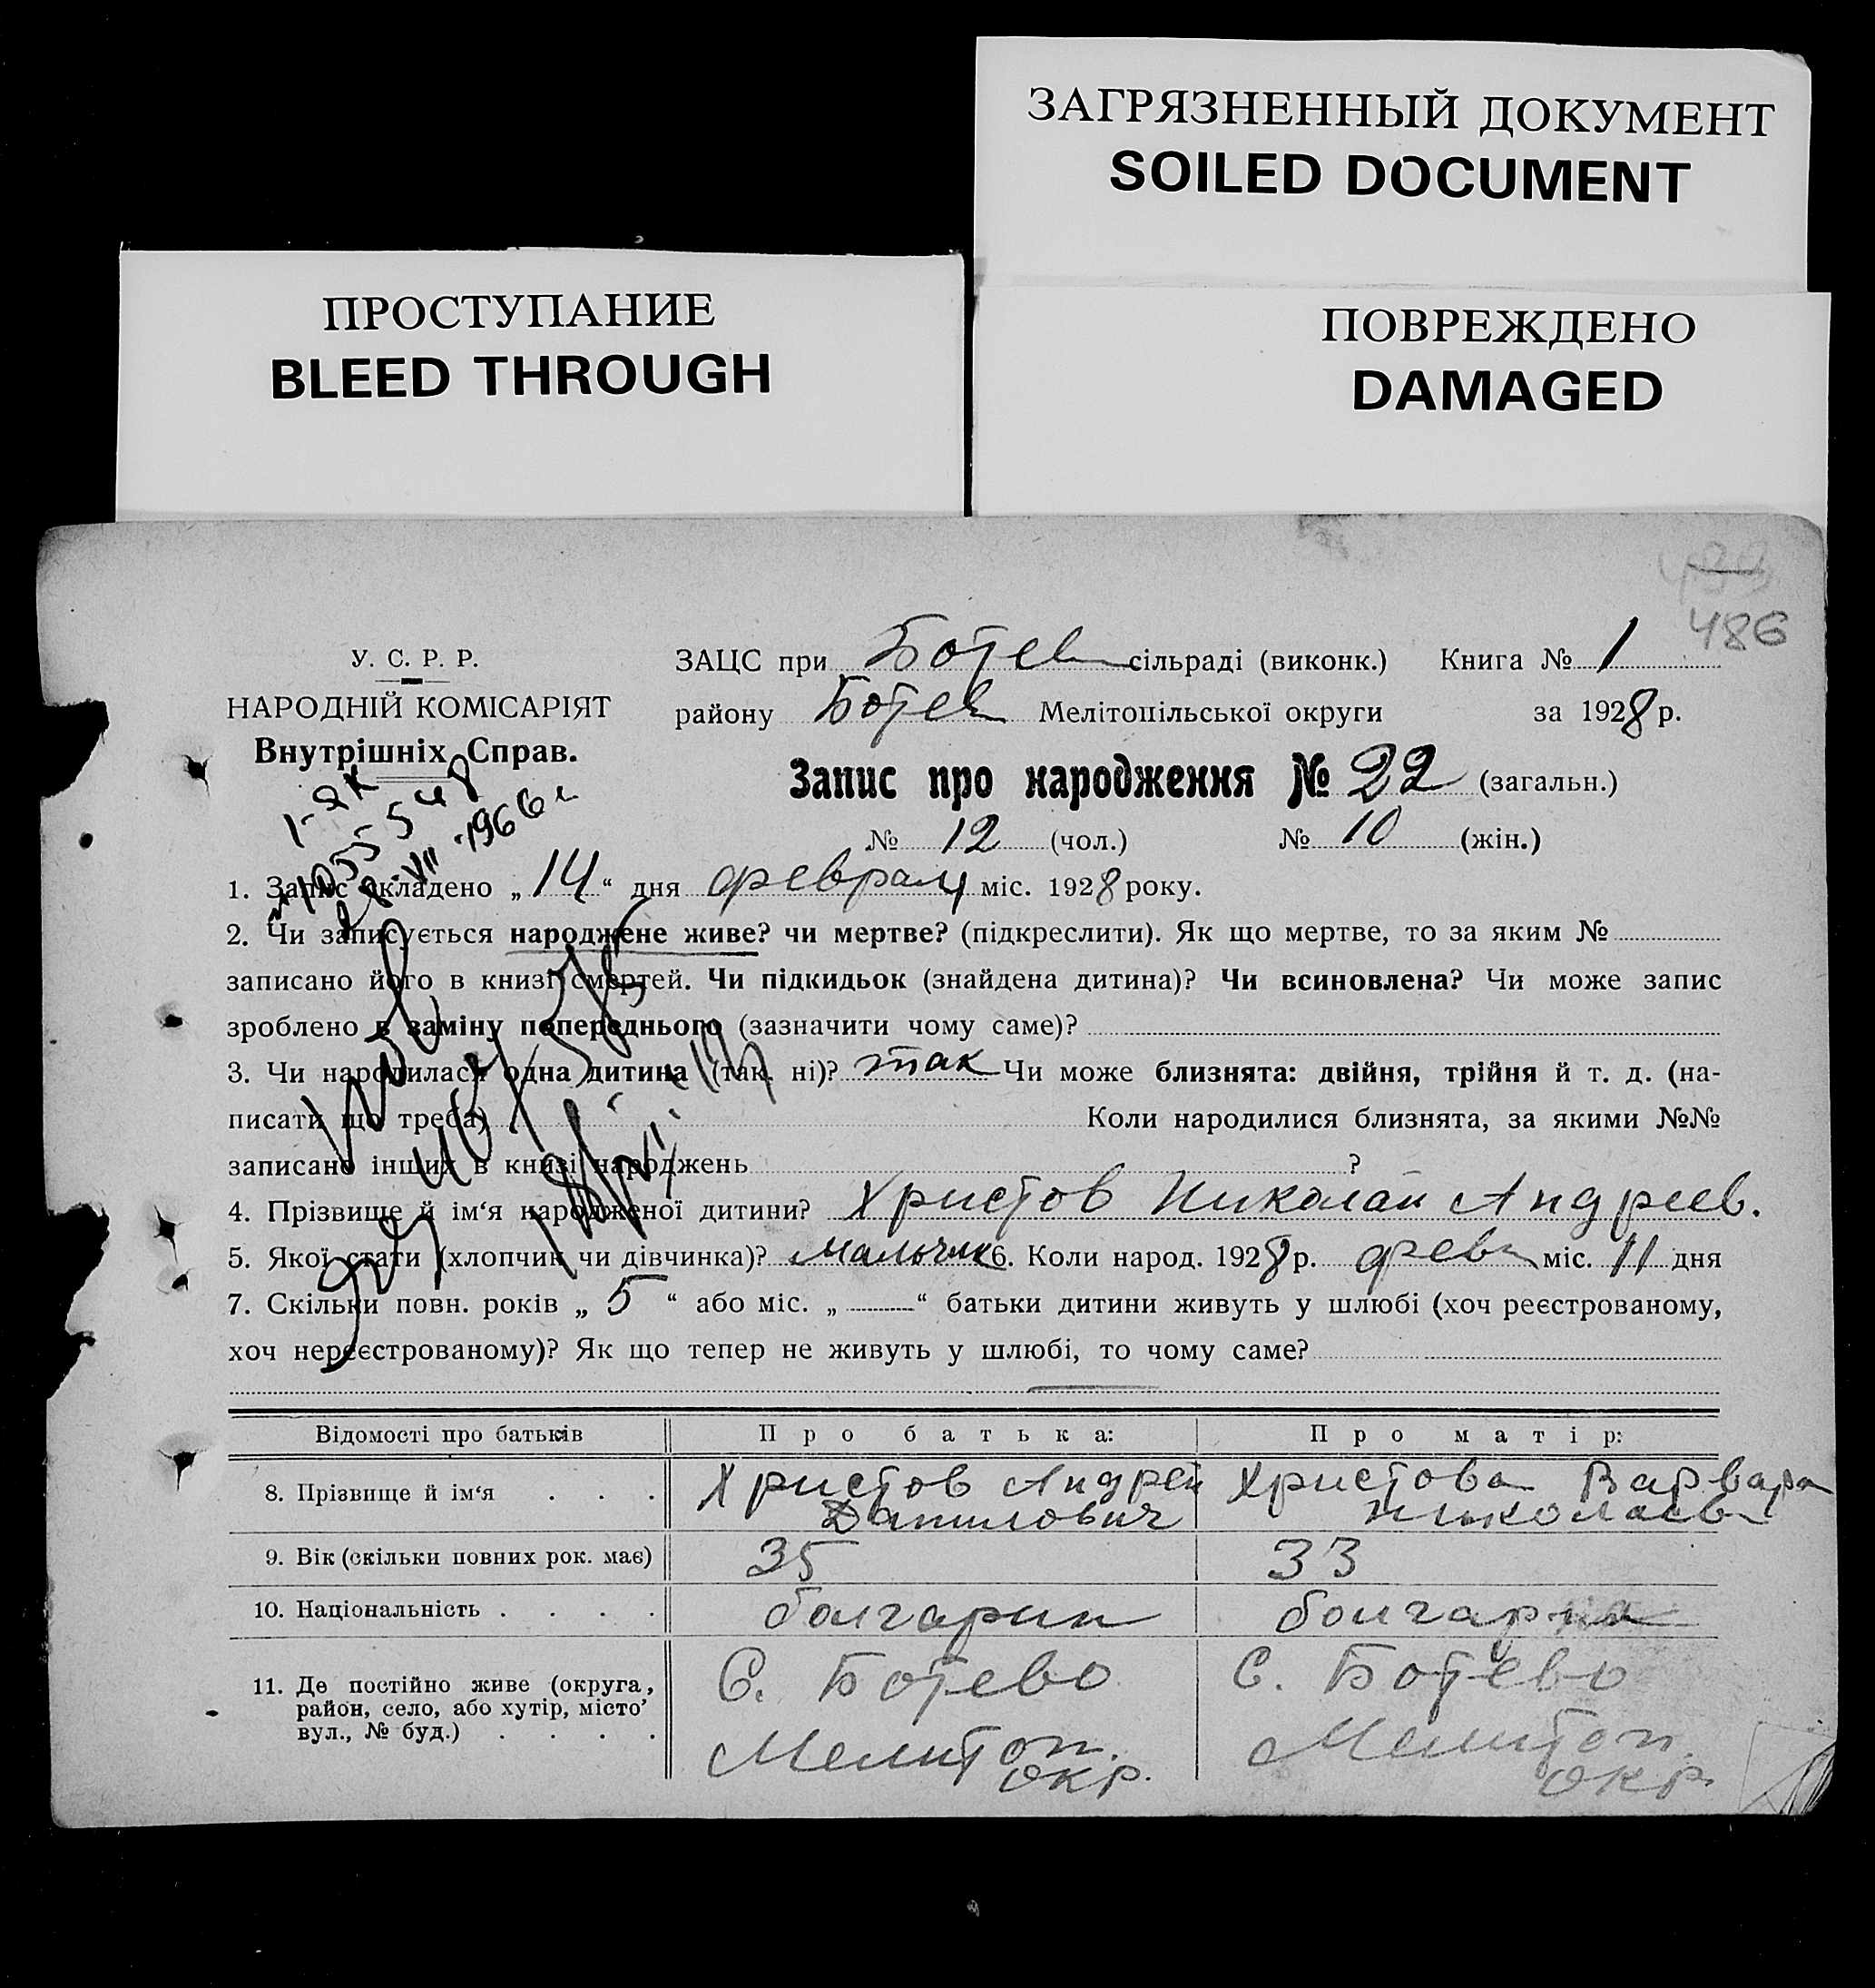 ЗАГРЯЗНЕННЫЙ ДОКУМЕНТ
SOILED DOCUMENT
ПРОСТУПАНИЕ
BLEED THROUGH
ПОВРЕЖДЕНО
DAMAGED
486
У. С. Р. Р.
НАРОДНІЙ КОМІСАРІЯТ
Внутрішніх Справ.
ЗАЦС при Ботев сільраді (виконк.) Книга № 1
району Ботев Мелітопільської округи за 1928 р.
Запис про народження № 22 (загальн.)
№ 12 (чол.) № 10 (жін.)
1. Запис складено „14“ дня февраля міс. 1928 року.
2. Чи записується народжене живе? чи мертве? (підкреслити). Як що мертве, то за яким №
записано його в книзі смертей. Чи підкидьок (знайдена дитина)? Чи всиновлена? Чи може запис
зроблено в заміну попереднього (зазначити чому саме)?
3. Чи народилася одна дитина (так. ні)? так Чи може близнята: двійня, трійня й т. д. (на-
писати що треба) Коли народилися близнята, за якими №№
записано інших в книзі народжень ?
4. Прізвище й ім‘я народженої дитини? Христов Николай Андреев.
5. Якої стати (хлопчик чи дівчинка)? мальчик 6. Коли народ. 1928 р. февр міс. 11 дня
7. Скільки повн. років „ 5 “ або міс. „ “ батьки дитини живуть у шлюбі (хоч реєстрованому,
хоч нереєстрованому)? Як що тепер не живуть у шлюбі, то чому саме?
Відомості про батьків Про батька: Про матір:
8. Прізвище й ім‘я . . . Христов Андрей Христова Варвара
Данилович Николаев
9. Вік (скільки повних рок. має) 35 33
10. Національність . . . . болгарин болгарка
11. Де постійно живе (округа, С. Ботево С. Ботево
район, село, або хутір, місто’
вул., № буд.) . . . . Мелитоп. Мелитоп.
окр. окр.